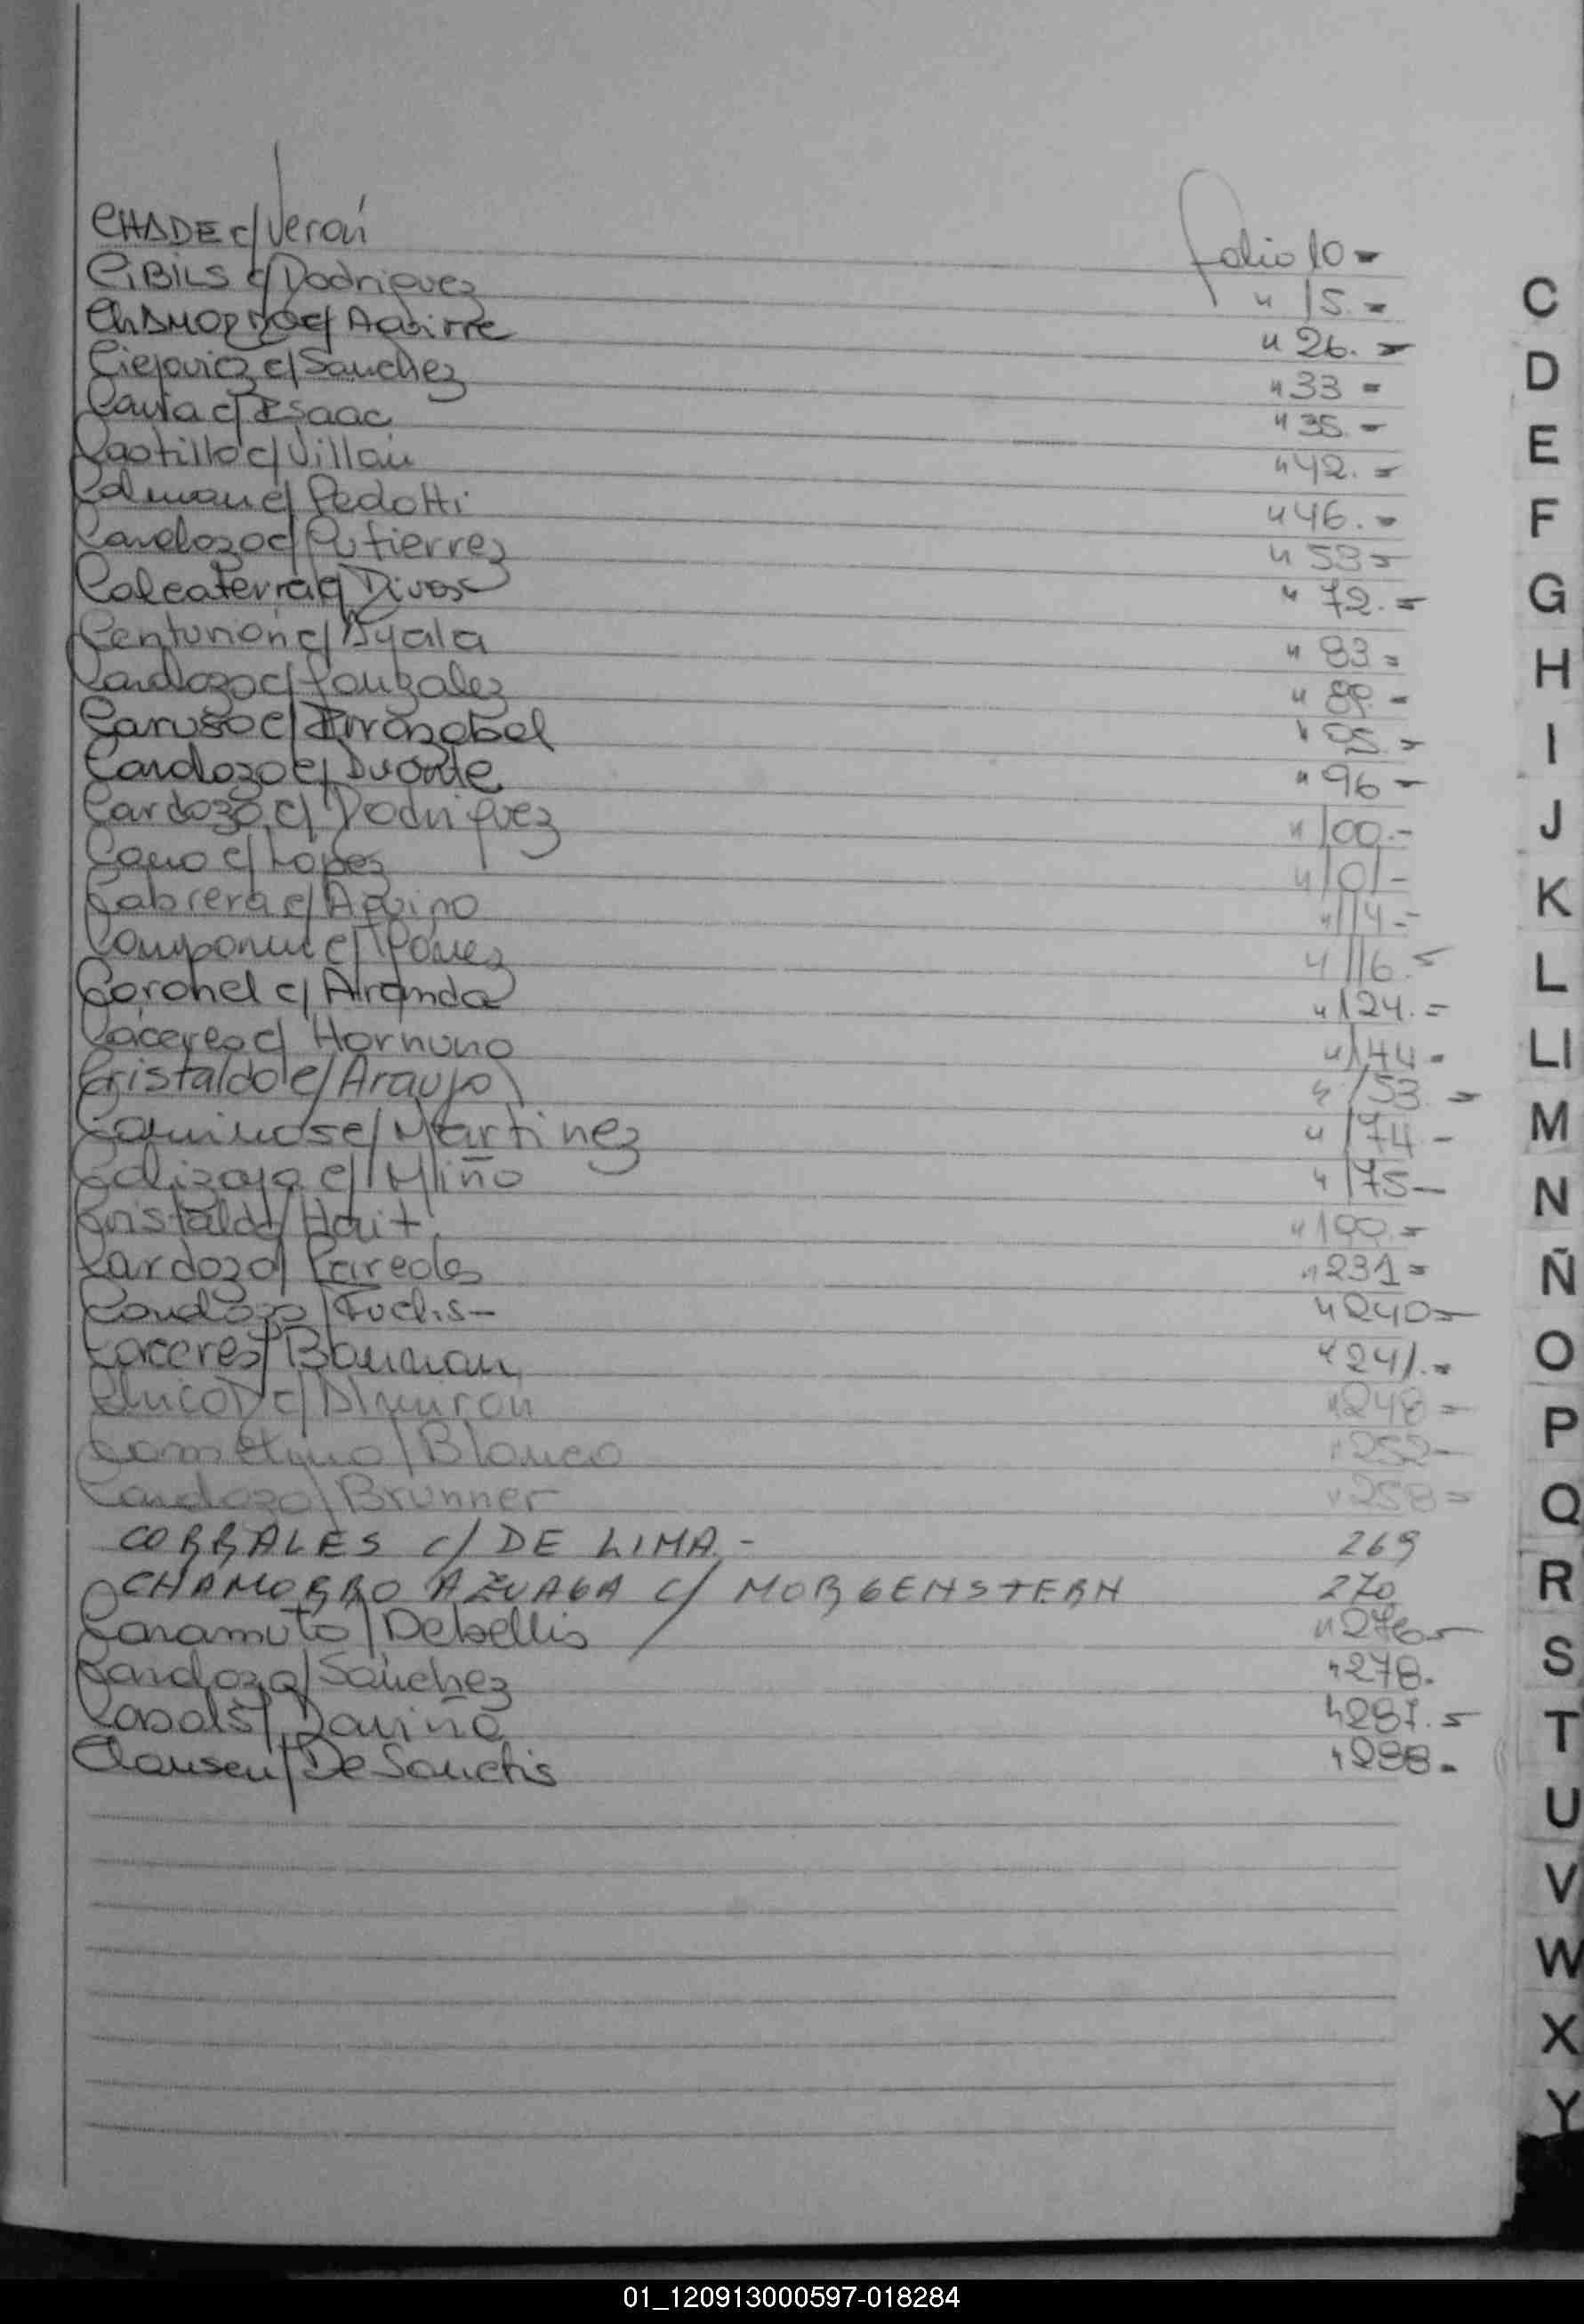 CHADE c/ Verón folio 10 =
CIBILS c/ Rodriguez " 15. =
ChAMORRO c/ Aguirre " 26. =
Ciejovicz c/ Sanchez " 33 =
c/ Isaac " 35. =
Castillo c/ Villán " 42. =
Colman c/ Pedotti " 46. =
Cardozo c/ Gutierrez " 59 =
Calcaterra c/ Rivas " 72. =
Centurión c/ Ayala " 83 =
Cardozo c/ Gonzalez " 89. =
Caruso c/ " 95. =
Cardozo c/ Duarte " 96 =
Cardozo c/ Rodriguez " 100. -
Cano c/ López " 101 -
Cabrera c/ Aquino " 114. =
c/ " 116. =
Coronel c/ Aranda " 124. =
Cáceres c/ Hornuno " 144 =
Cristaldo c/ Araujo " 153. =
c/ Martinez " 174. -
Calizaya c/ Miño " 175 -
Cristaldo / Hait =
Cardozo / Paredes " 231 =
Cardozo / Fuchs - " 240 =
Caceres / Bauman " 241. =
c/ " 248 =
/ Blanco " 252 -
Cardozo / Brunner " 258 =
CORRALES c/ DE LIMA - 269
CHAMORRO AZUAGA c/ MORGENSTERN 270
Caramuto / Debellis " 276 =
Cardozo / Sánchez " 278.
Casals / Daviña " 287. =
Clausen / De Sanctis " 288. =
C
D
E
F
G
H
I
J
K
L
LI
M
N
Ñ
O
P
Q
R
S
T
U
V
W
X
Y
01_120913000597-018284